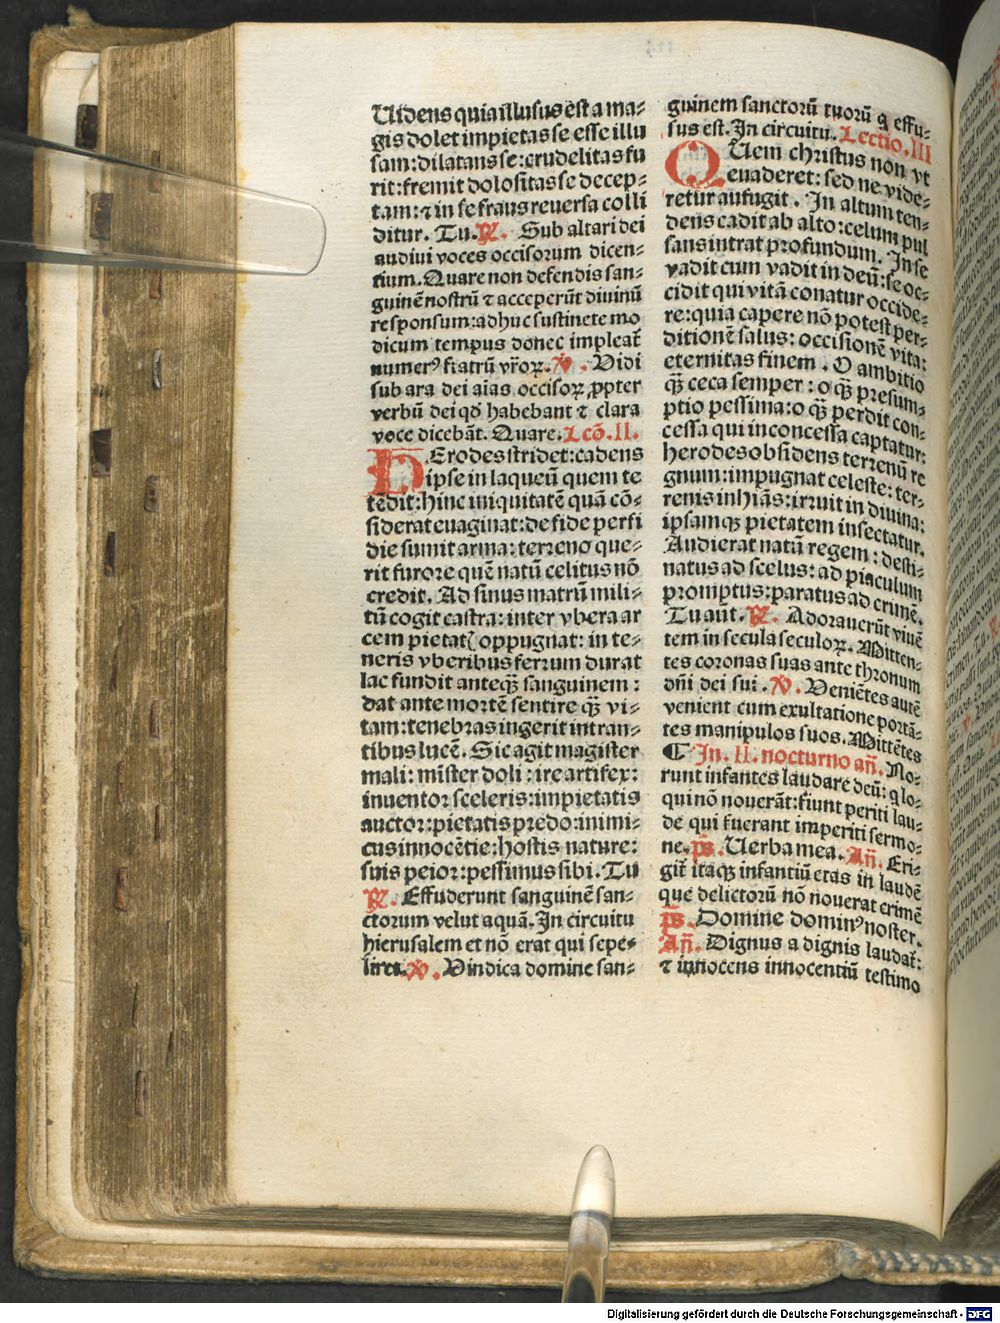 Uidens quia illusus est a ma⸗
gis dolet impietas se esse illu
sam: dilatans se: crudelitas fu
rit: fremit dolositas se decep⸗
tam: ⁊ in se fraus reuersa colli
ditur. Tu. ℟. Sub altari dei
audiui voces occisorum dicen⸗
tium. Quare non defendis san⸗
guinē nostrū ⁊ acceperūt diuinū
responsum: adhuc sustinete mo
dicum tempus donec impleat᷑
numerꝰ fratrū vr̄oꝝ. ℣. Vidi
sub ara dei aīas occisoꝝ ꝓpter
verbū dei qd̓ habebant ⁊ clara
voce dicebāt. Quare. Lcō. II.
HErodes stridet: cadens
ipse in laqueū quem te
tēdit: hinc iniquitatē quā cō⸗
siderat euaginat: de fide perfi
die sumit arma: terreno que⸗
rit furore quē natū celitus nō
credit. Ad sinus matrū mili⸗
tū cogit castra: inter vbera ar
cem pietatꝭ oppugnat: in te⸗
neris vberibus ferrum durat
lac fundit anteqꝫ̄ sanguinem:
dat ante mortē sentire qꝫ̄ vi⸗
tam: tenebras ingerit intran⸗
tibus lucē. Sic agit magister
mali: mister doli: ire artifex:
inuentor sceleris: impietatis
auctor: pietatis predo: inimi⸗
cus innocētie: hostis nature:
suis peior: pessimus sibi. Tu
℟. Effuderunt sanguinē san⸗
ctorum velut aquā. In circuitu
hierusalem et nō erat qui sepe⸗
liret. ℣. Vindica domine san⸗
guinem sanctorū tuorū q̄ effu⸗
sus est. In circuitu. Lectio. III
QUem christus non vt
euaderet: sed ne vide⸗
retur aufugit. In altum ten⸗
dens cadit ab alto: celum pul
sans intrat profundum. In se
vadit cum vadit in deū: se oc⸗
cidit qui vitā conatur occide⸗
re: quia capere nō potest per⸗
ditionē salus: occisionē vita:
eternitas finem. O ambitio
qꝫ̄ ceca semper: o qꝫ̄ presum⸗
ptio pessima: o qꝫ̄ perdit con⸗
cessa qui inconcessa captatur:
herodes obsidens terrenū re
gnum: impugnat celeste: ter⸗
renis inhiās: irruit in diuina:
ipsamqꝫ pietatem insectatur.
Audierat natū regem: desti⸗
natus ad scelus: ad piaculum
promptus: paratus ad crimē.
Tu aut. ℟. Adorauerūt viuē
tem in secula seculoꝝ. Mitten⸗
tes coronas suas ante thronum
dn̄i dei sui. ℣. Veniētes autē
venient cum exultatione portā⸗
tes manipulos suos. Mittētes
¶ In. II. nocturno an̄. No⸗
runt infantes laudare deū: q̄ lo⸗
qui nō nouerāt: fiunt periti lau⸗
de qui fuerant imperiti sermo⸗
ne. p̄s. Uerba mea. An̄. Eri⸗
git᷑ itaqꝫ infantiū etas in laudē
que delictorū nō nouerat crimē
p̄s. Domine dominꝰ noster.
An̄. Dignus a dignis laudat᷑:
⁊ innocens innocentiū testimo
Digitalisierung gefördert durch die Deutsche Forschungsgemeinschaft - DFG